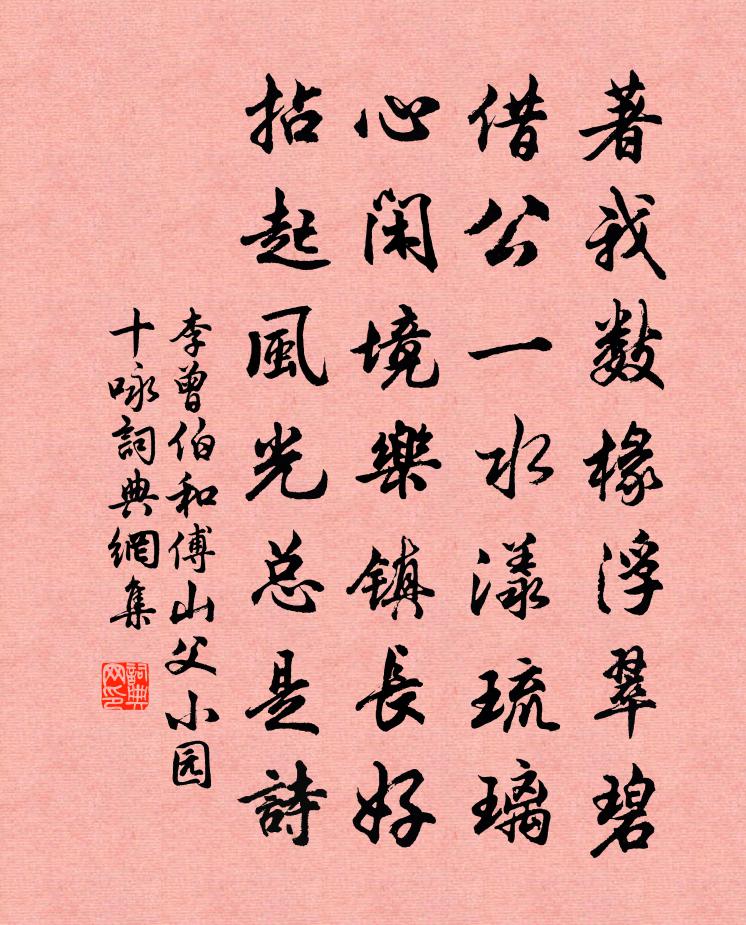 著我数椽浮翠碧
借公一水漾琉璃
心闲境樂镇長好
拈起風光总是詩
李曾伯和傅山父小园
十咏詞典網集
詞典网印